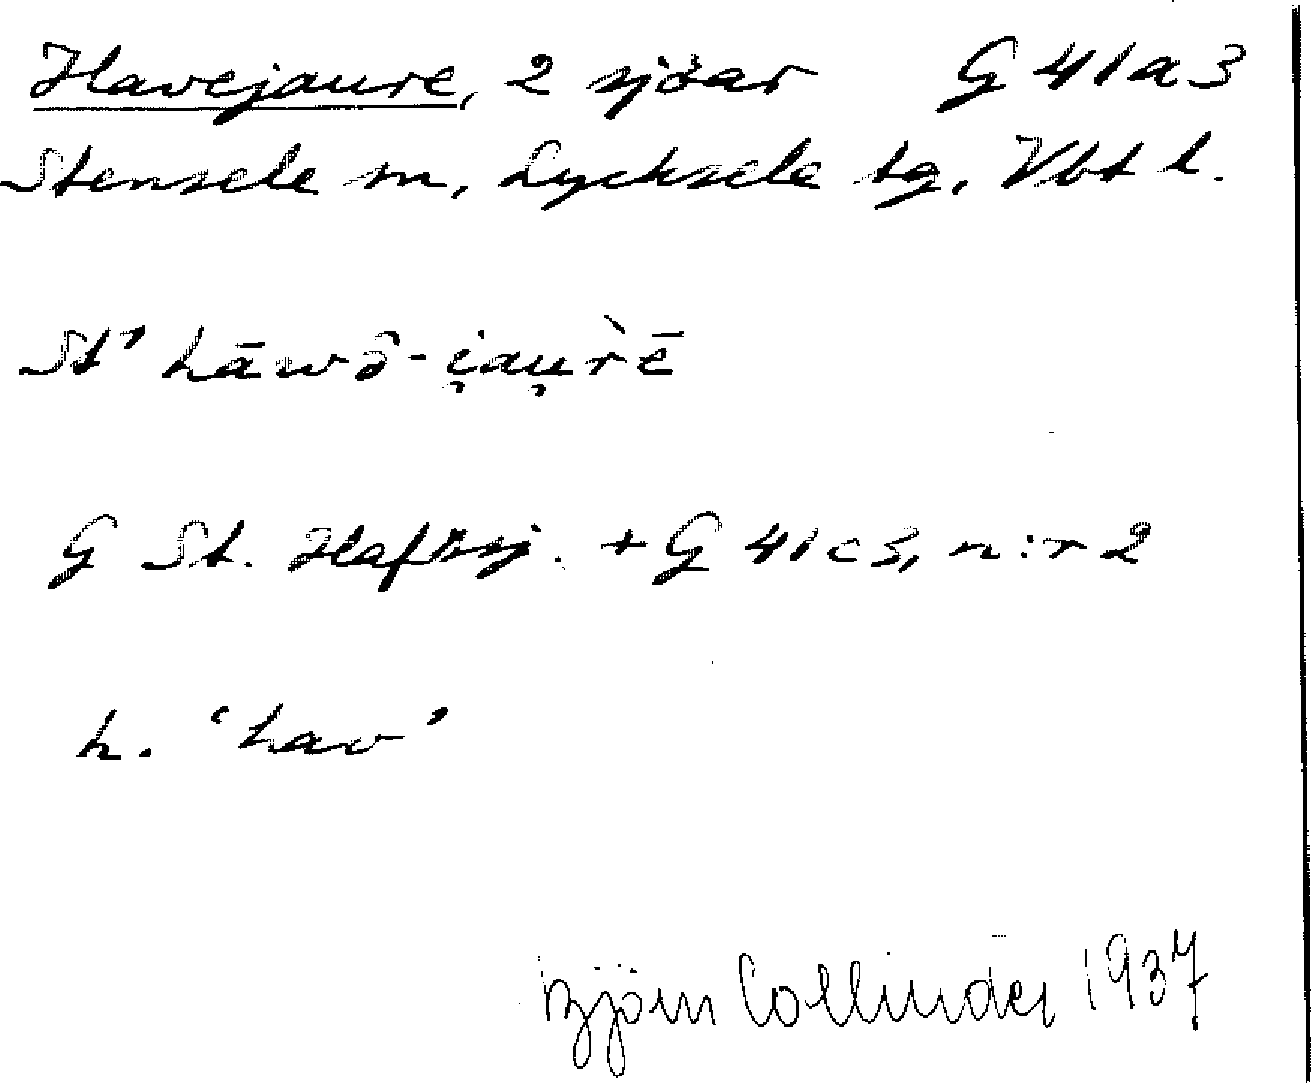 Havejaure, 2 sjöar G 41 a 3
Stensele sn, Lycksele tg, Vbt l.
St' hāwô-i̯au̯r̀ē
G St. Hafssj. + G 41 c 3, n:r 2
h. 'hav'
Björn Collinder 1937